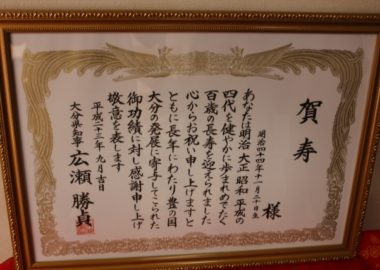 賀寿
様
明治四十四年十一月二十日生
あなたは明治 大正 昭和 平成の
四代を健やかに歩まれめでたく
百歳の長寿を迎えられました
心からお祝い申し上げますと
ともに長年にわたり豊の国
大分の発展に寄与してこられた
御功績に対し感謝申し上げ
敬意を表します
平成二十三年 九月吉日
大分県知事 広瀬勝貞